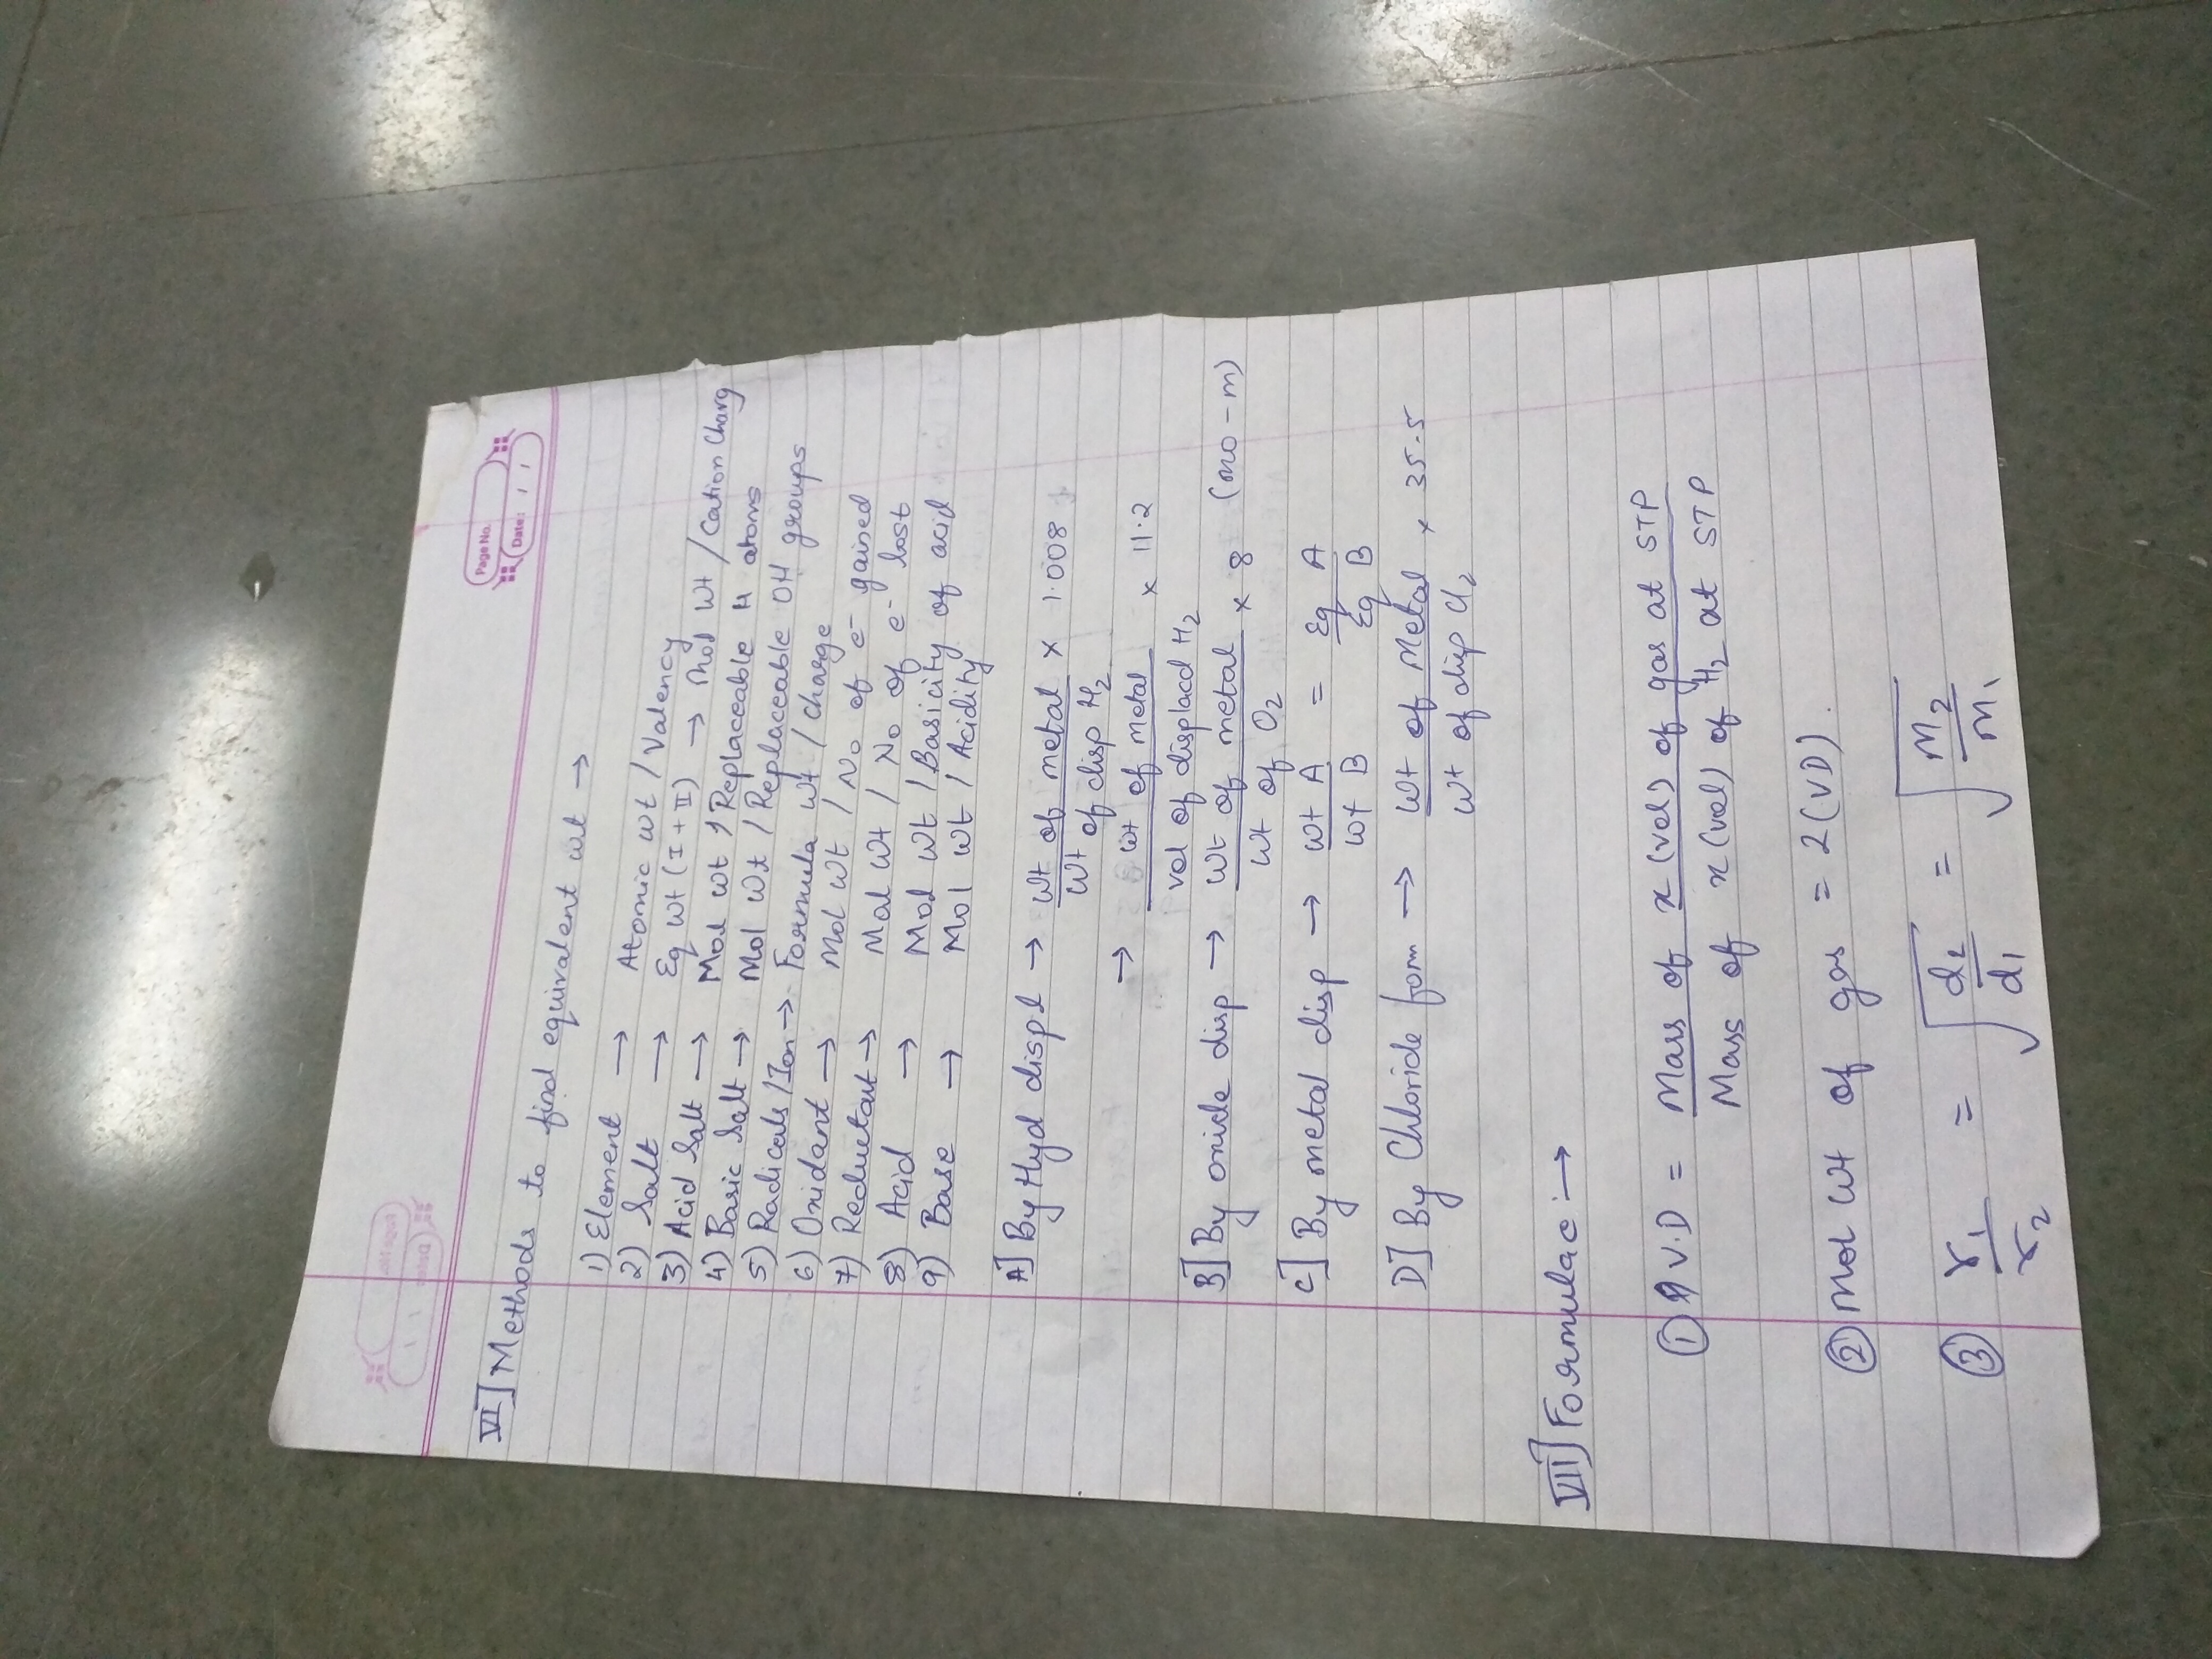 Page No.
Date: / /
VI] Methods to find equivalent wt →
1) Element → Atomic wt / Valency
2) Salt → Eq wt (I + II) → Mol wt / Cation Charg
3) Acid Salt → Mol wt / Replaceable H atoms
4) Basic Salt → Mol wt / Replaceable OH groups
5) Radicals / Ion → Formula wt / Charge
6) Oxidant → Mol wt / No of e⁻ gained
7) Reductant → Mol wt / No of e⁻ lost
8) Acid → Mol wt / Basicity of acid
9) Base → Mol wt / Acidity
A] By Hyd displ → wt of metal / wt of disp H₂ × 1.008
→ wt of metal / vol of displacd H₂ × 11.2
B] By oxide disp → wt of metal / wt of O₂ × 8 (mo - m)
C] By metal disp → wt A / wt B = Eq A / Eq B
D] By Chloride form → wt of Metal / wt of disp Cl₂ × 35.5
VII] Formulae :→
① V.D = Mass of x (vol) of gas at STP / Mass of x (vol) of H₂ at STP
② Mol wt of gas = 2 (VD).
③ r₁ / r₂ = √ d₂ / d₁ = √ M₂ / M₁